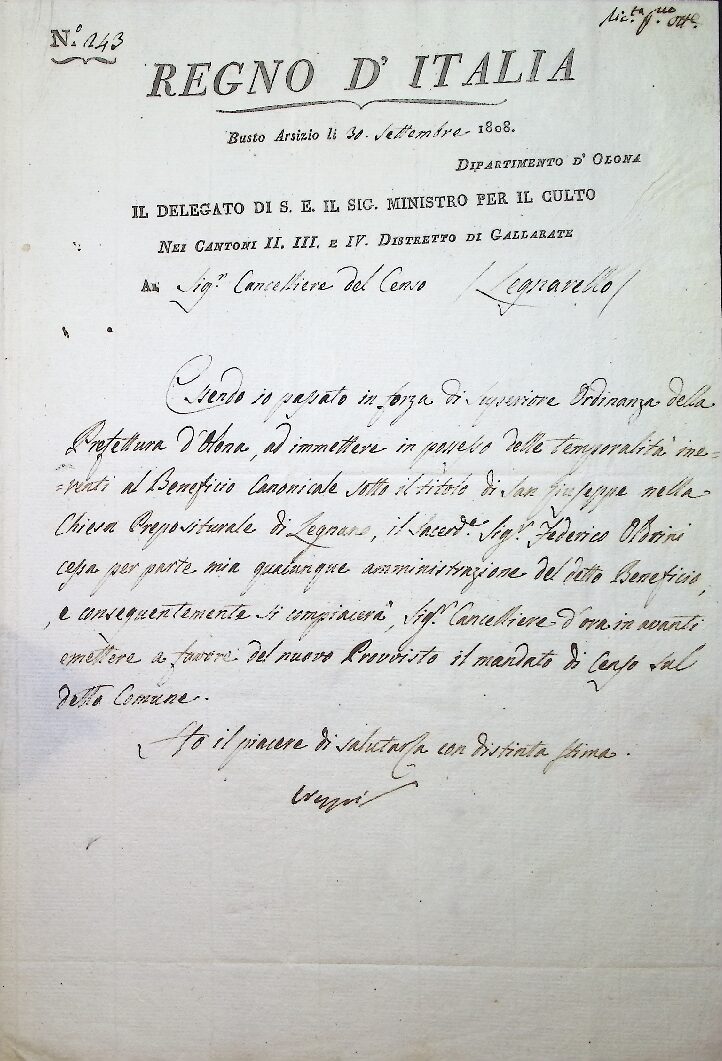 N.º 243
Ric.ta p.mo Ott.e
REGNO D' ITALIA
Busto Arsizio li 30. Settembre 1808.
DIPARTIMENTO D' OLONA
IL DELEGATO DI S. E. IL SIG. MINISTRO PER IL CULTO
NEI CANTONI II. III. E IV. DISTRETTO DI GALLARATE
Al Sig.r Cancelliere del Censo / Legnarello /
Essendo io passato in forza di Superiore Ordinanza della
Prefettura d'Olona, ad immettere in possesso delle temporalità ine=
=renti al Beneficio Canonicale sotto il titolo di San Giuseppe nella
Chiesa Prepositurale di Legnano, il Sacerd.e Sig.r Federico
cessa per parte mia qualunque amministrazione del detto Beneficio,
e conseguentemente si compiacerà, Sig.r Cancelliere d'ora in avanti
emettere a favore del nuovo Provvisto il mandato di Censo sul
detto Comune.
Ho il piacere di salutarla con distinta stima.